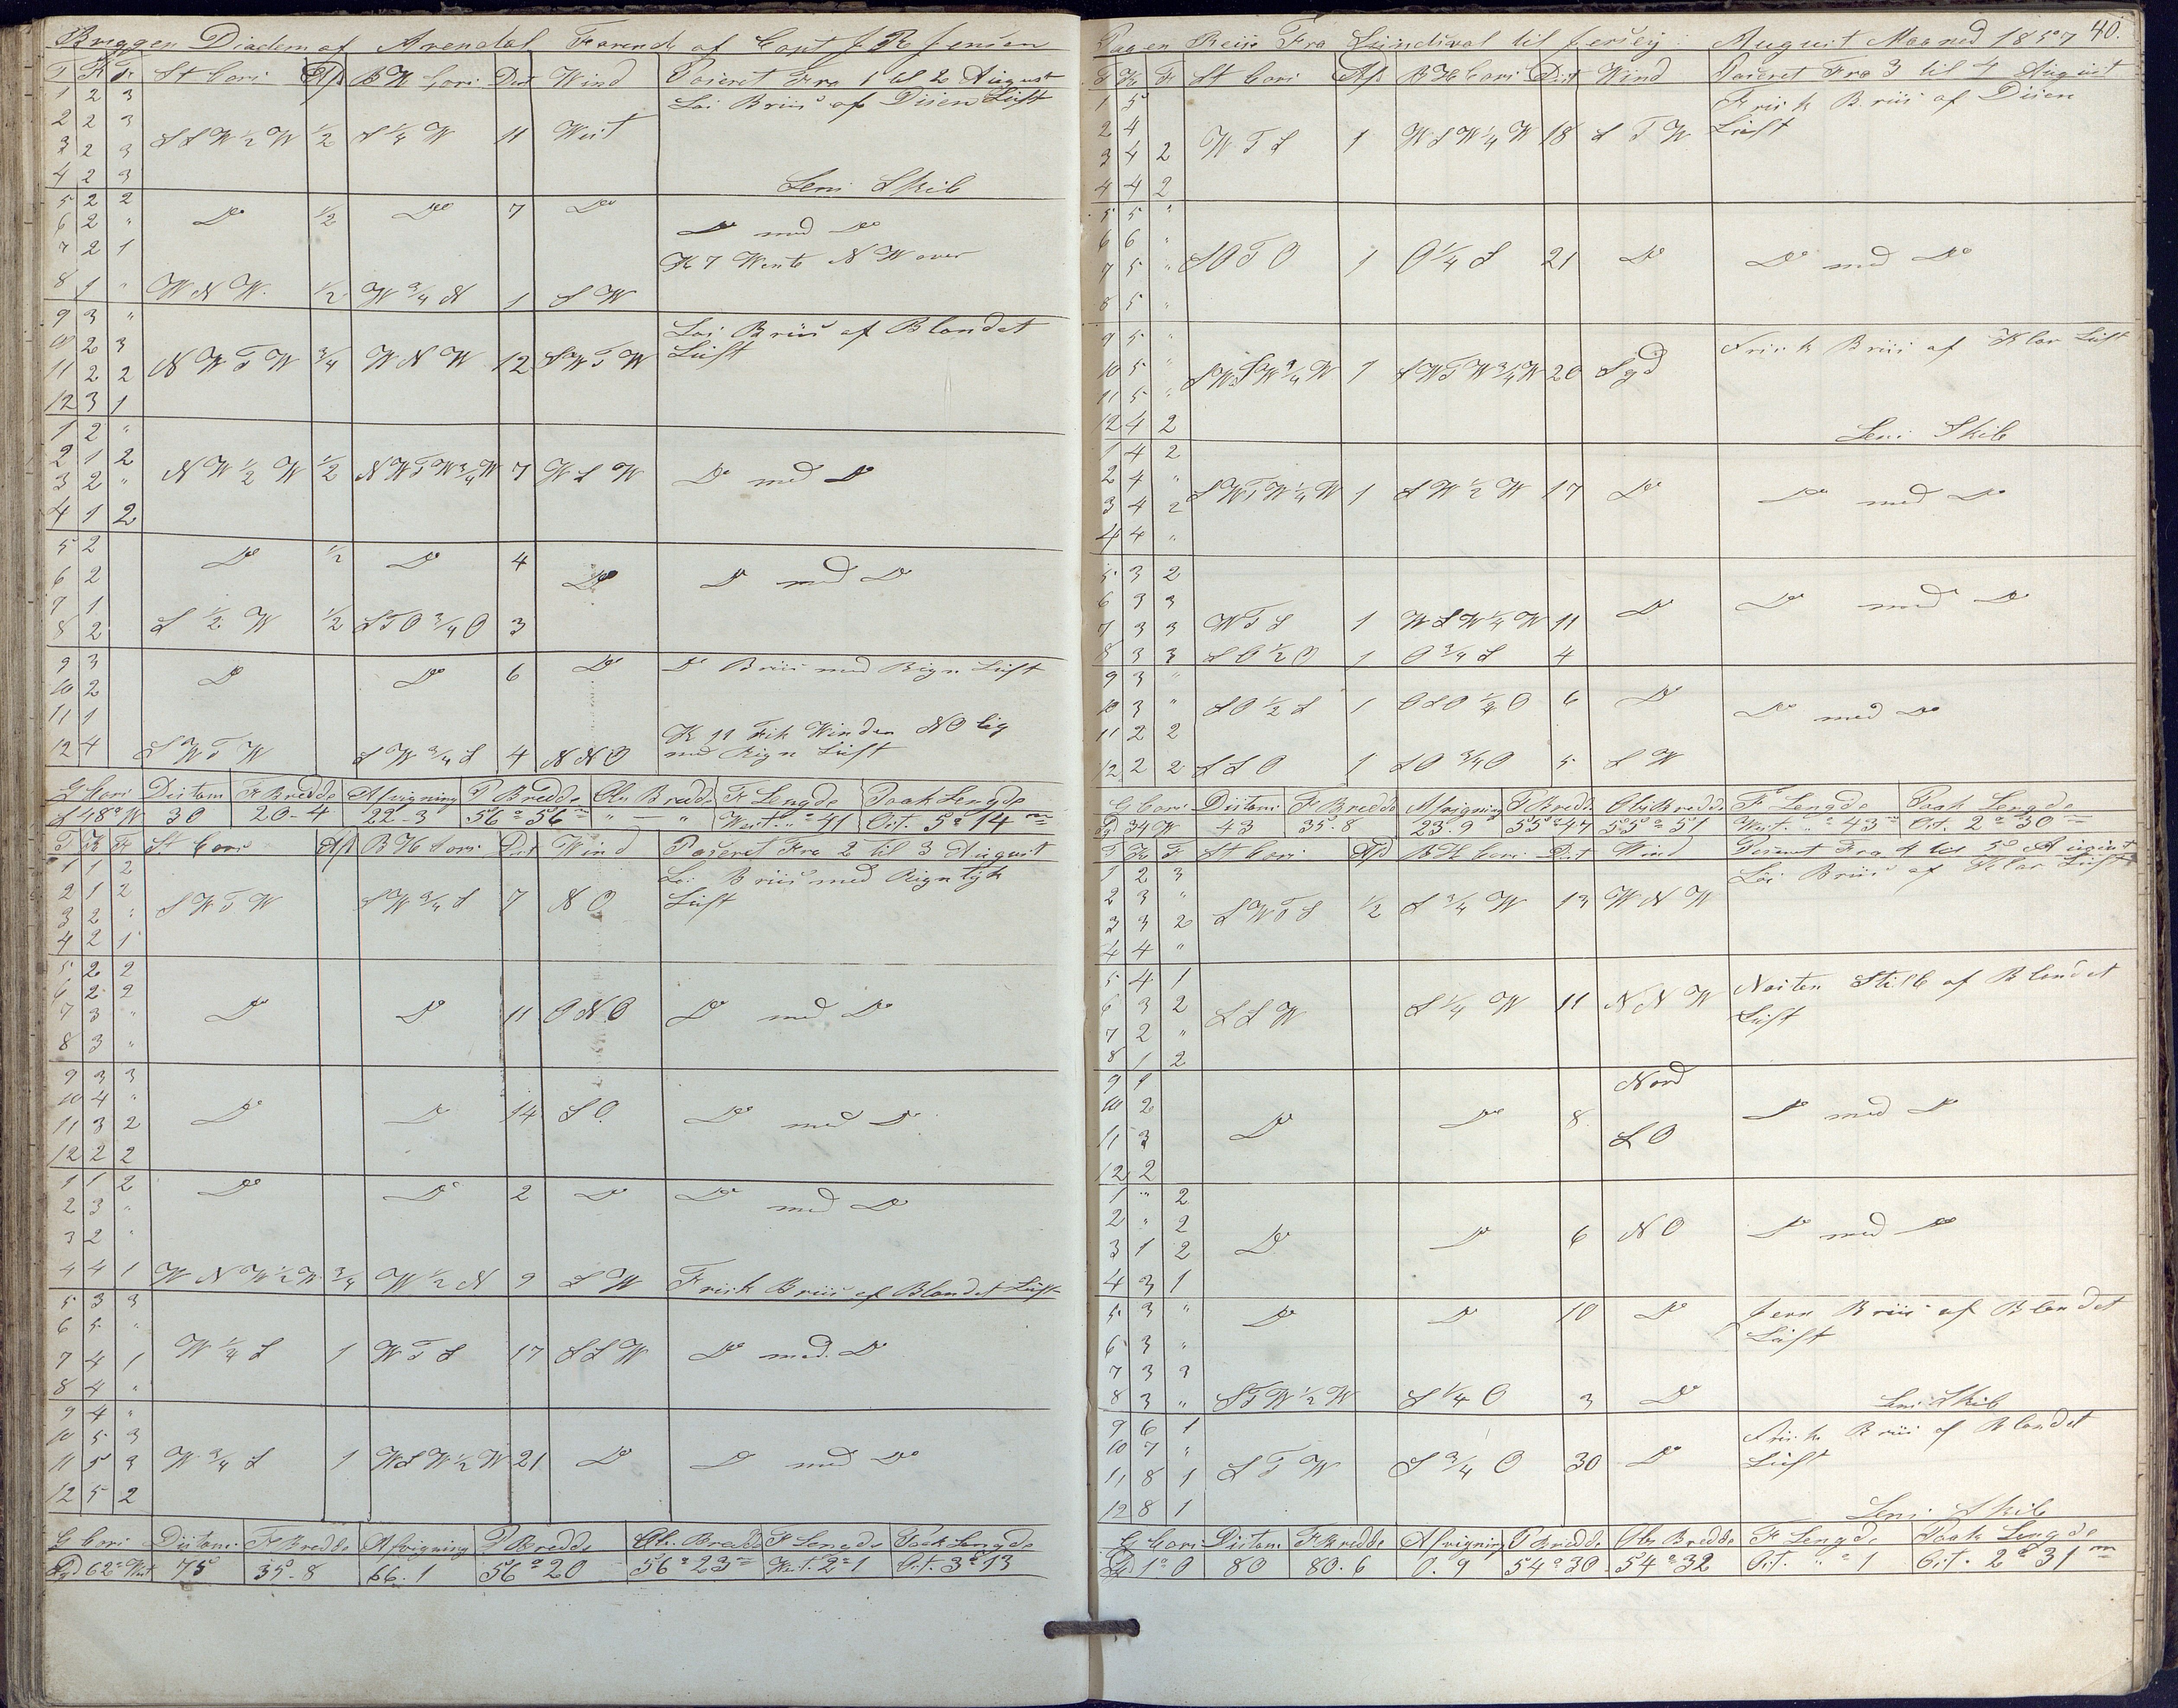 Briggen Diadem af Arendal Førende af Capt J R Jensen
T K F St Cors Afd B H Cors Dist Wind Paseret Fra 1 til 2 August
1 2 3 Løi Briis af Disen Luft
2 2 3
3 2 3 S S W ½ W ½ S ¼ W 11 West
4 2 3 Lens Skib
5 2 2
6 2 " Do ½ Do 7 Do Do med Do
7 2 1 Kl 7 Wente N W over
8 1 " W N W ½ W ¾ N 1 S W
9 3 " Løi Briis af Blandet
10 2 3 Luft
11 2 2 N W T W ¾ W N W 12 S W T W
12 3 1
1 2 "
2 1 2
3 2 " N W ½ W ½ N W T W ¾ W 7 W S W Do med Do
4 1 2
5 2 Do ½ Do 4
6 2 Do Do med Do
7 1
8 2 S ½ W ½ S T O ¾ O 3
9 3 Do Do 6 Do Do Briis med Rign Luft
10 2
11 1 Kl 11 Fik Winden NO lig
12 4 S W T W S W ¾ S 4 N N O med Rign Luft
G Cors Distans F Bredde Afvigning P Bredde Obs Bredde F Lengde Paak Lengde
S 48° W 30 20-4 22-3 56° 56m " — " West " ° 41 Ost. 5° 14m
T K F St Cors Afd B H Cors Dist Wind Paseret Fra 2 til 3 August
1 1 2 Løi Briis med Rign tyk
2 1 2 Luft
3 2 " S W T W S W ¾ S 7 N O
4 2 1
5 2 2
6 2 2
7 3 " Do Do 11 O N O Do med Do
8 3 "
9 3 3
10 4 "
11 3 2 Do Do 14 S O Do med Do
12 2 2
1 1 2 Do Do 2 Do Do med Do
2 3 "
3 2 "
4 4 1 W N W ½ W ¾ W ½ N 9 S W Frisk Briis af Blandet Luft
5 3 3
6 5 "
7 4 1 W ¼ S 1 W T S 17 S S W Do med Do
8 4 "
9 4 "
10 5 3
11 5 3 W ¾ S 1 W S W ½ W 21 Do Do med Do
12 5 2
G Cors Distans F Bredde Afvigning P Bredde Obs. Bredde F Lengde Paak Lengde
Syd 62° West 75 35-8 66.1 56° 20 56° 23m West. 2° 1 Ost. 3° 13
Paa en Reise Fra Sundsval til Jersey August Maaned 1857 40.
T K F St Cors Afd B H Cors Dist Wind Paseret Fra 3 til 4 August
1 5 Frisk Briis af Disen
2 4 Luft
3 4 2 W T S 1 W S W ¼ W 18 S T W
4 4 2
5 5 "
6 6 "
7 5 " S O T O 1 O ¼ S 21 Do Do med Do
8 5 "
9 5 " Frisk Briis af Klar Luft
10 5 " S W S W ¾ W 1 S W T W ¾ W 20 Syd
11 5 "
12 4 2 Lens Skib
1 4 2
2 4 "
3 4 2 S W T W ¼ W 1 S W ½ W 17 Do Do med Do
4 4 "
5 3 2
6 3 3 Do Do med Do
7 3 3 W T S 1 W S W ¼ W 11
8 3 3 S O ½ O 1 O ¾ S 4
9 3 "
10 3 " S O ½ S 1 O S O ¼ O 6 Do Do med Do
11 2 2
12 2 2 S S O 1 S O ¾ O 5 S W
G Cors Distans F Bredde Afvigning P Bredde Obs Bredde F Lengde Paak Lengde
Syd 34 W 43 35.8 23.9 55° 47 55° 51 West. " ° 43m Ost. 2° 30m
T K F St Cors Afd B H Cors Dist Wind Paseret Fra 4 til 5 August
1 2 3 Løi Briis af Klar Luft
2 3 "
3 3 2 S W T S ½ S ¾ W 13 W N W
4 4 "
5 4 1 Nesten Stilt af Blandet
6 3 2 S S W S ¼ W 11 N N W Luft
7 2 "
8 1 2
9 1 Nord
10 2 Do Do 8 Do med Do
11 3 S O
12 2
1 " 2
2 " 2
3 1 2 Do Do 6 N O Do med Do
4 3 1
5 3 " Do Do 10 Do Jevn Briis af Blandet
6 3 " Luft
7 3 3
8 3 " S T W ½ W S ¼ O 3 Do Lens Skib
9 6 1 Frisk Briis af Blandet
10 7 " Luft
11 8 1 S T W S ¾ O 30 Do
12 8 1 Lens Skib
G Cors Distans F Bredde Afvigning P Bredde Obs Bredde F Lengde Paak Lengde
Syd 1° O 80 80.6 0.9 54° 30 54° 32 Ost. " ° 1 Ost. 2° 31m